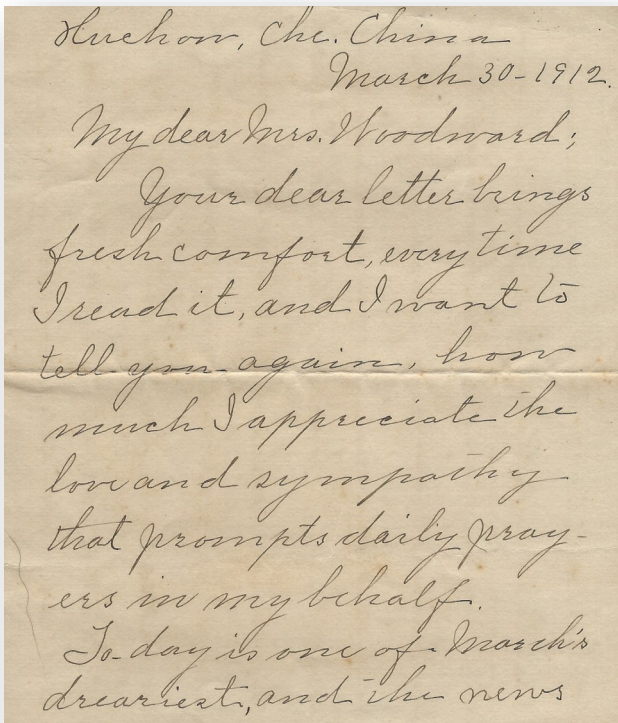 Huchow, Che. China
March 30-1912.
My dear Mrs. Woodward;
Your dear letter brings
fresh comfort, every time
I read it, and I want to
tell you again, how
much I appreciate the
love and sympathy
that prompts daily pray-
ers in my behalf.
To-day is one of March's
dreariest, and the news